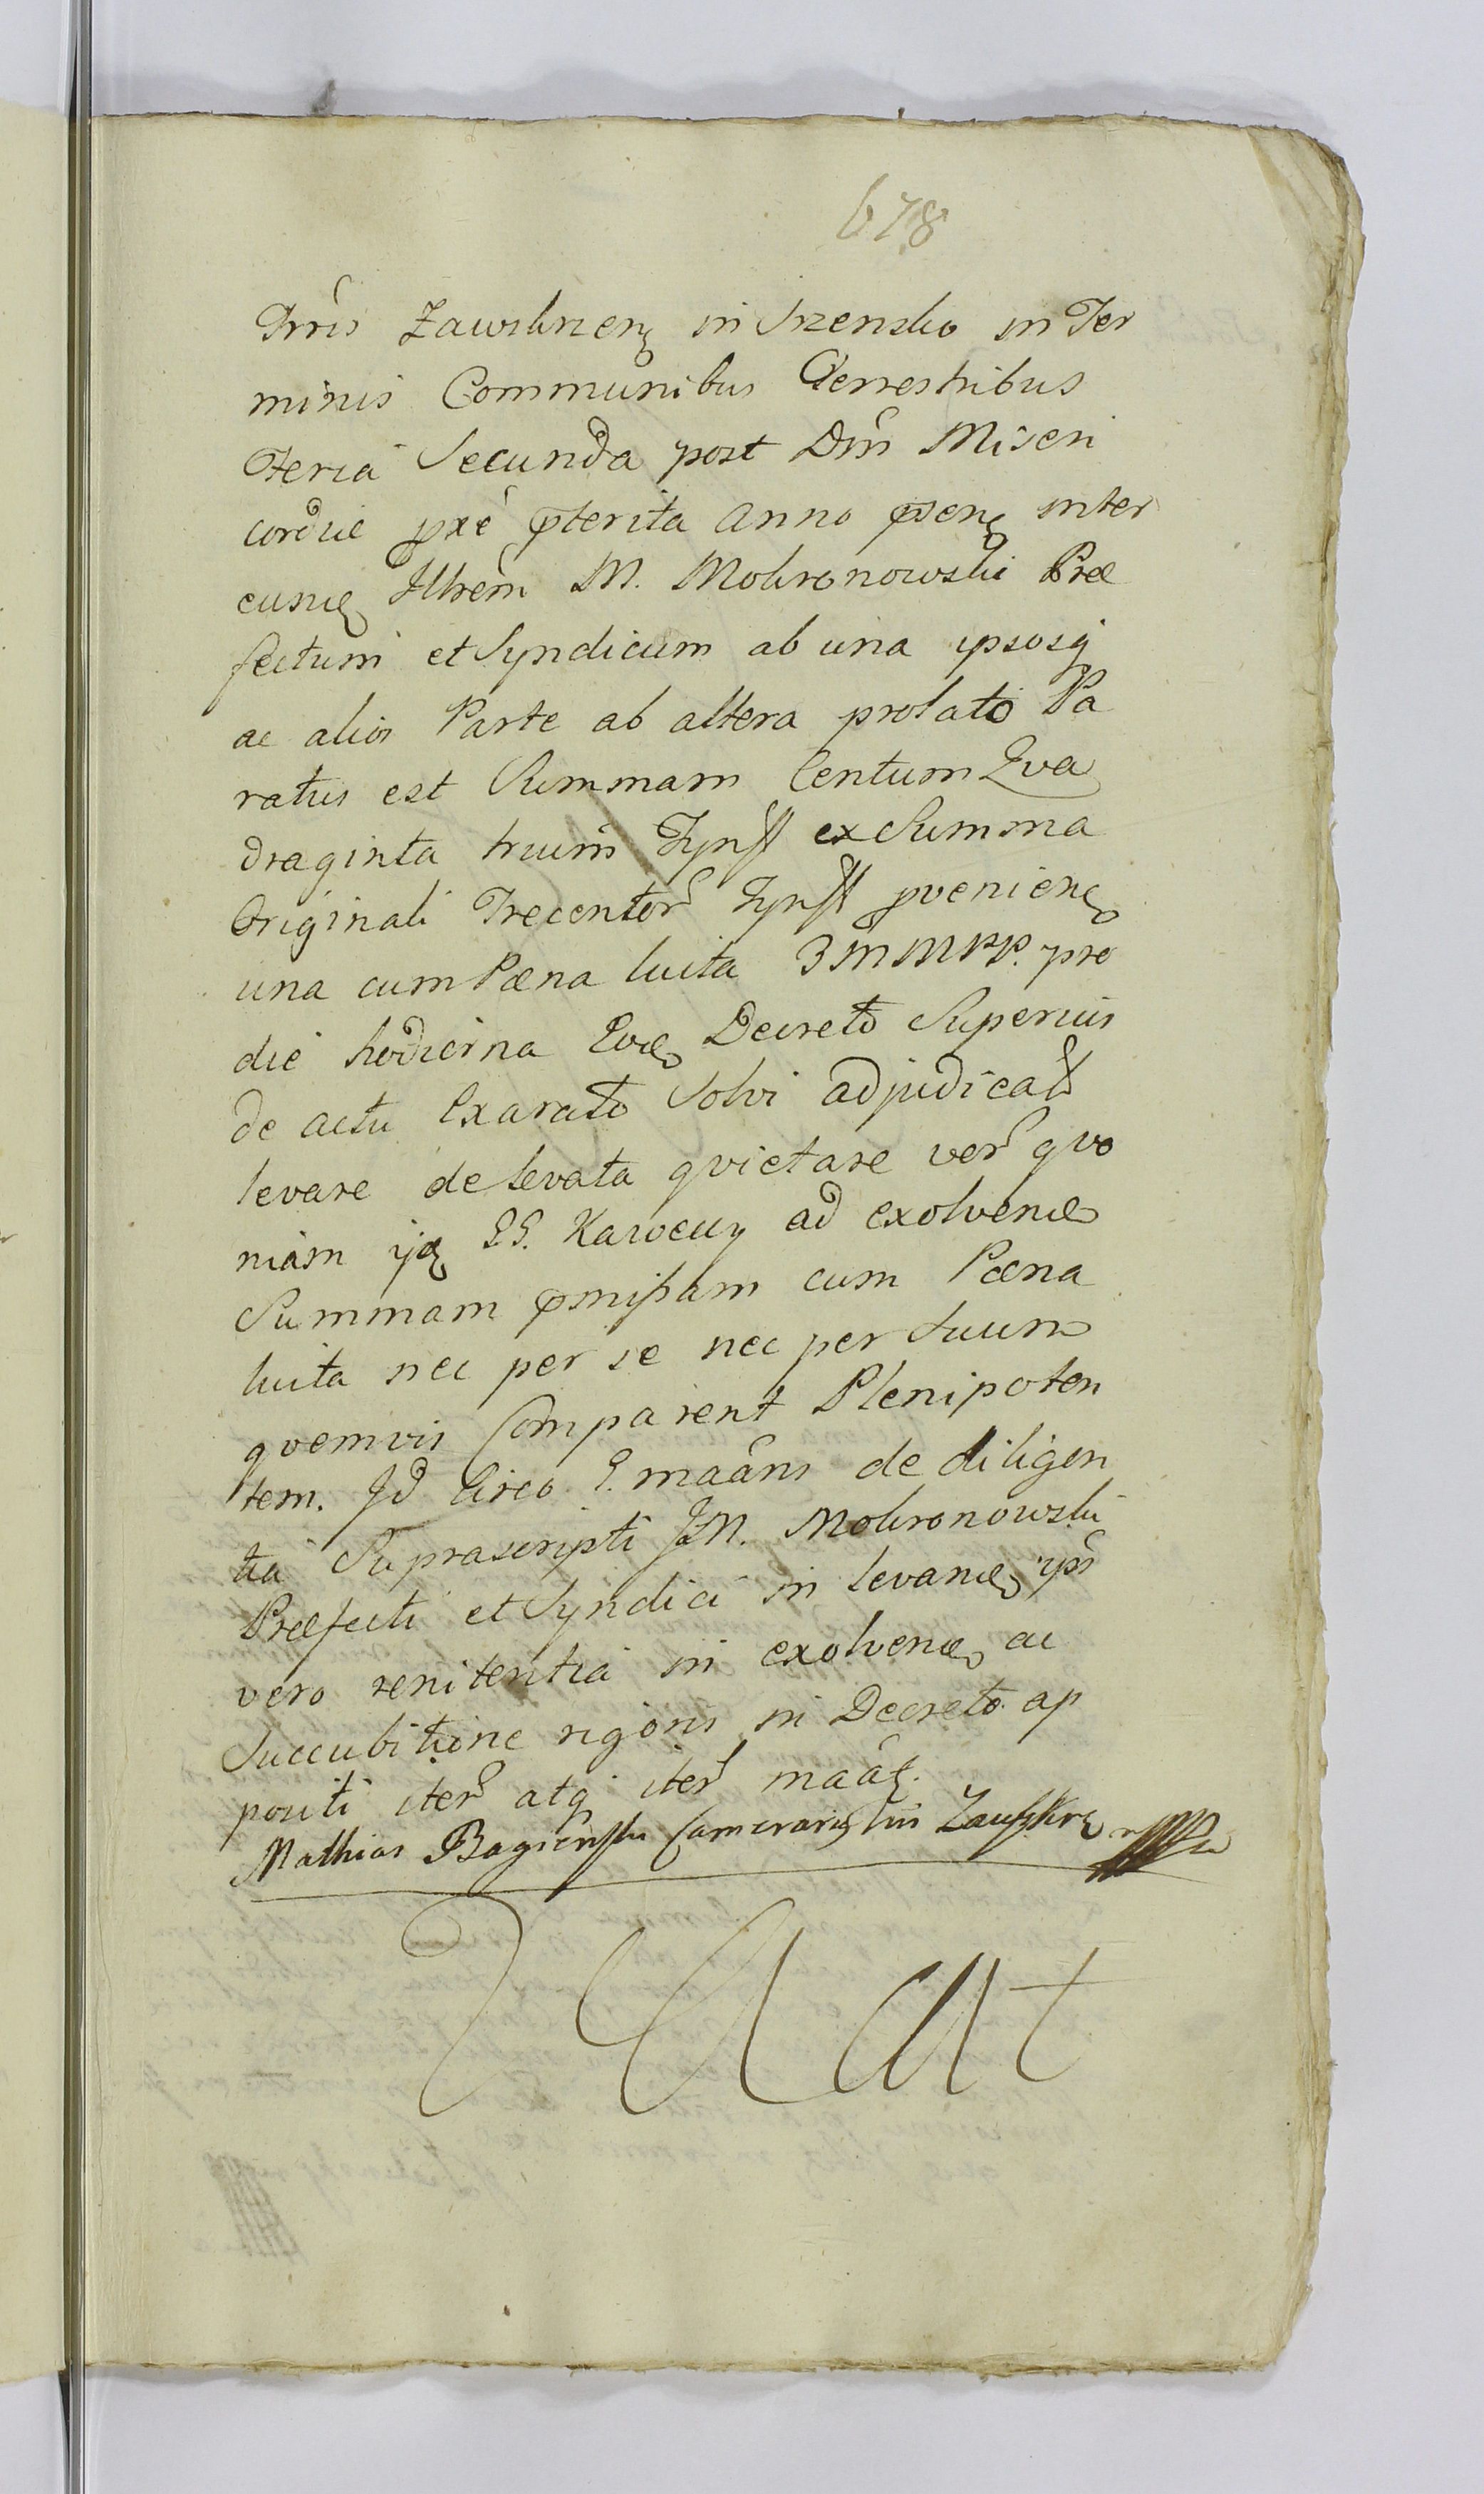 678
Trris Zawskrzen in Srzensko in Ter
minis Communibus Terrestribus
Feria Secunda post Dm̃ Miseri
cordiæ pxe pterita Anno psen inter
eund Illrem M. Mokronowski Præ
fectum et Syndicum ab una ipsosq
ac alios Parte ab altera prolato Pa
ratus est Summam Centum Qva
draginta trium Tynff ex Summa
Originali Trecentor Tynff pvenien
una cum Pæna luita 3 M M PP. pro
die hodierna Decreto Superius
de actu Exarato Solvi adjudicat
levare de levata qvietare ver qvo
niam GG. Karwccy ad exolvend
Summam pmissam cum Pæna
luita nec per se nec per Suum
qvemvis Comparent Plenipoten
tem. Id Circo G. maãns de diligen
tia Suprascripti JM. Mokronowski
Præfecti et Syndici in levand ips
vero renitentia in exolvend ac
Succubitione rigoris in Decreto ap
positi iter atq iter maãt.
Mathias Bagieński Camerarius Zawskr